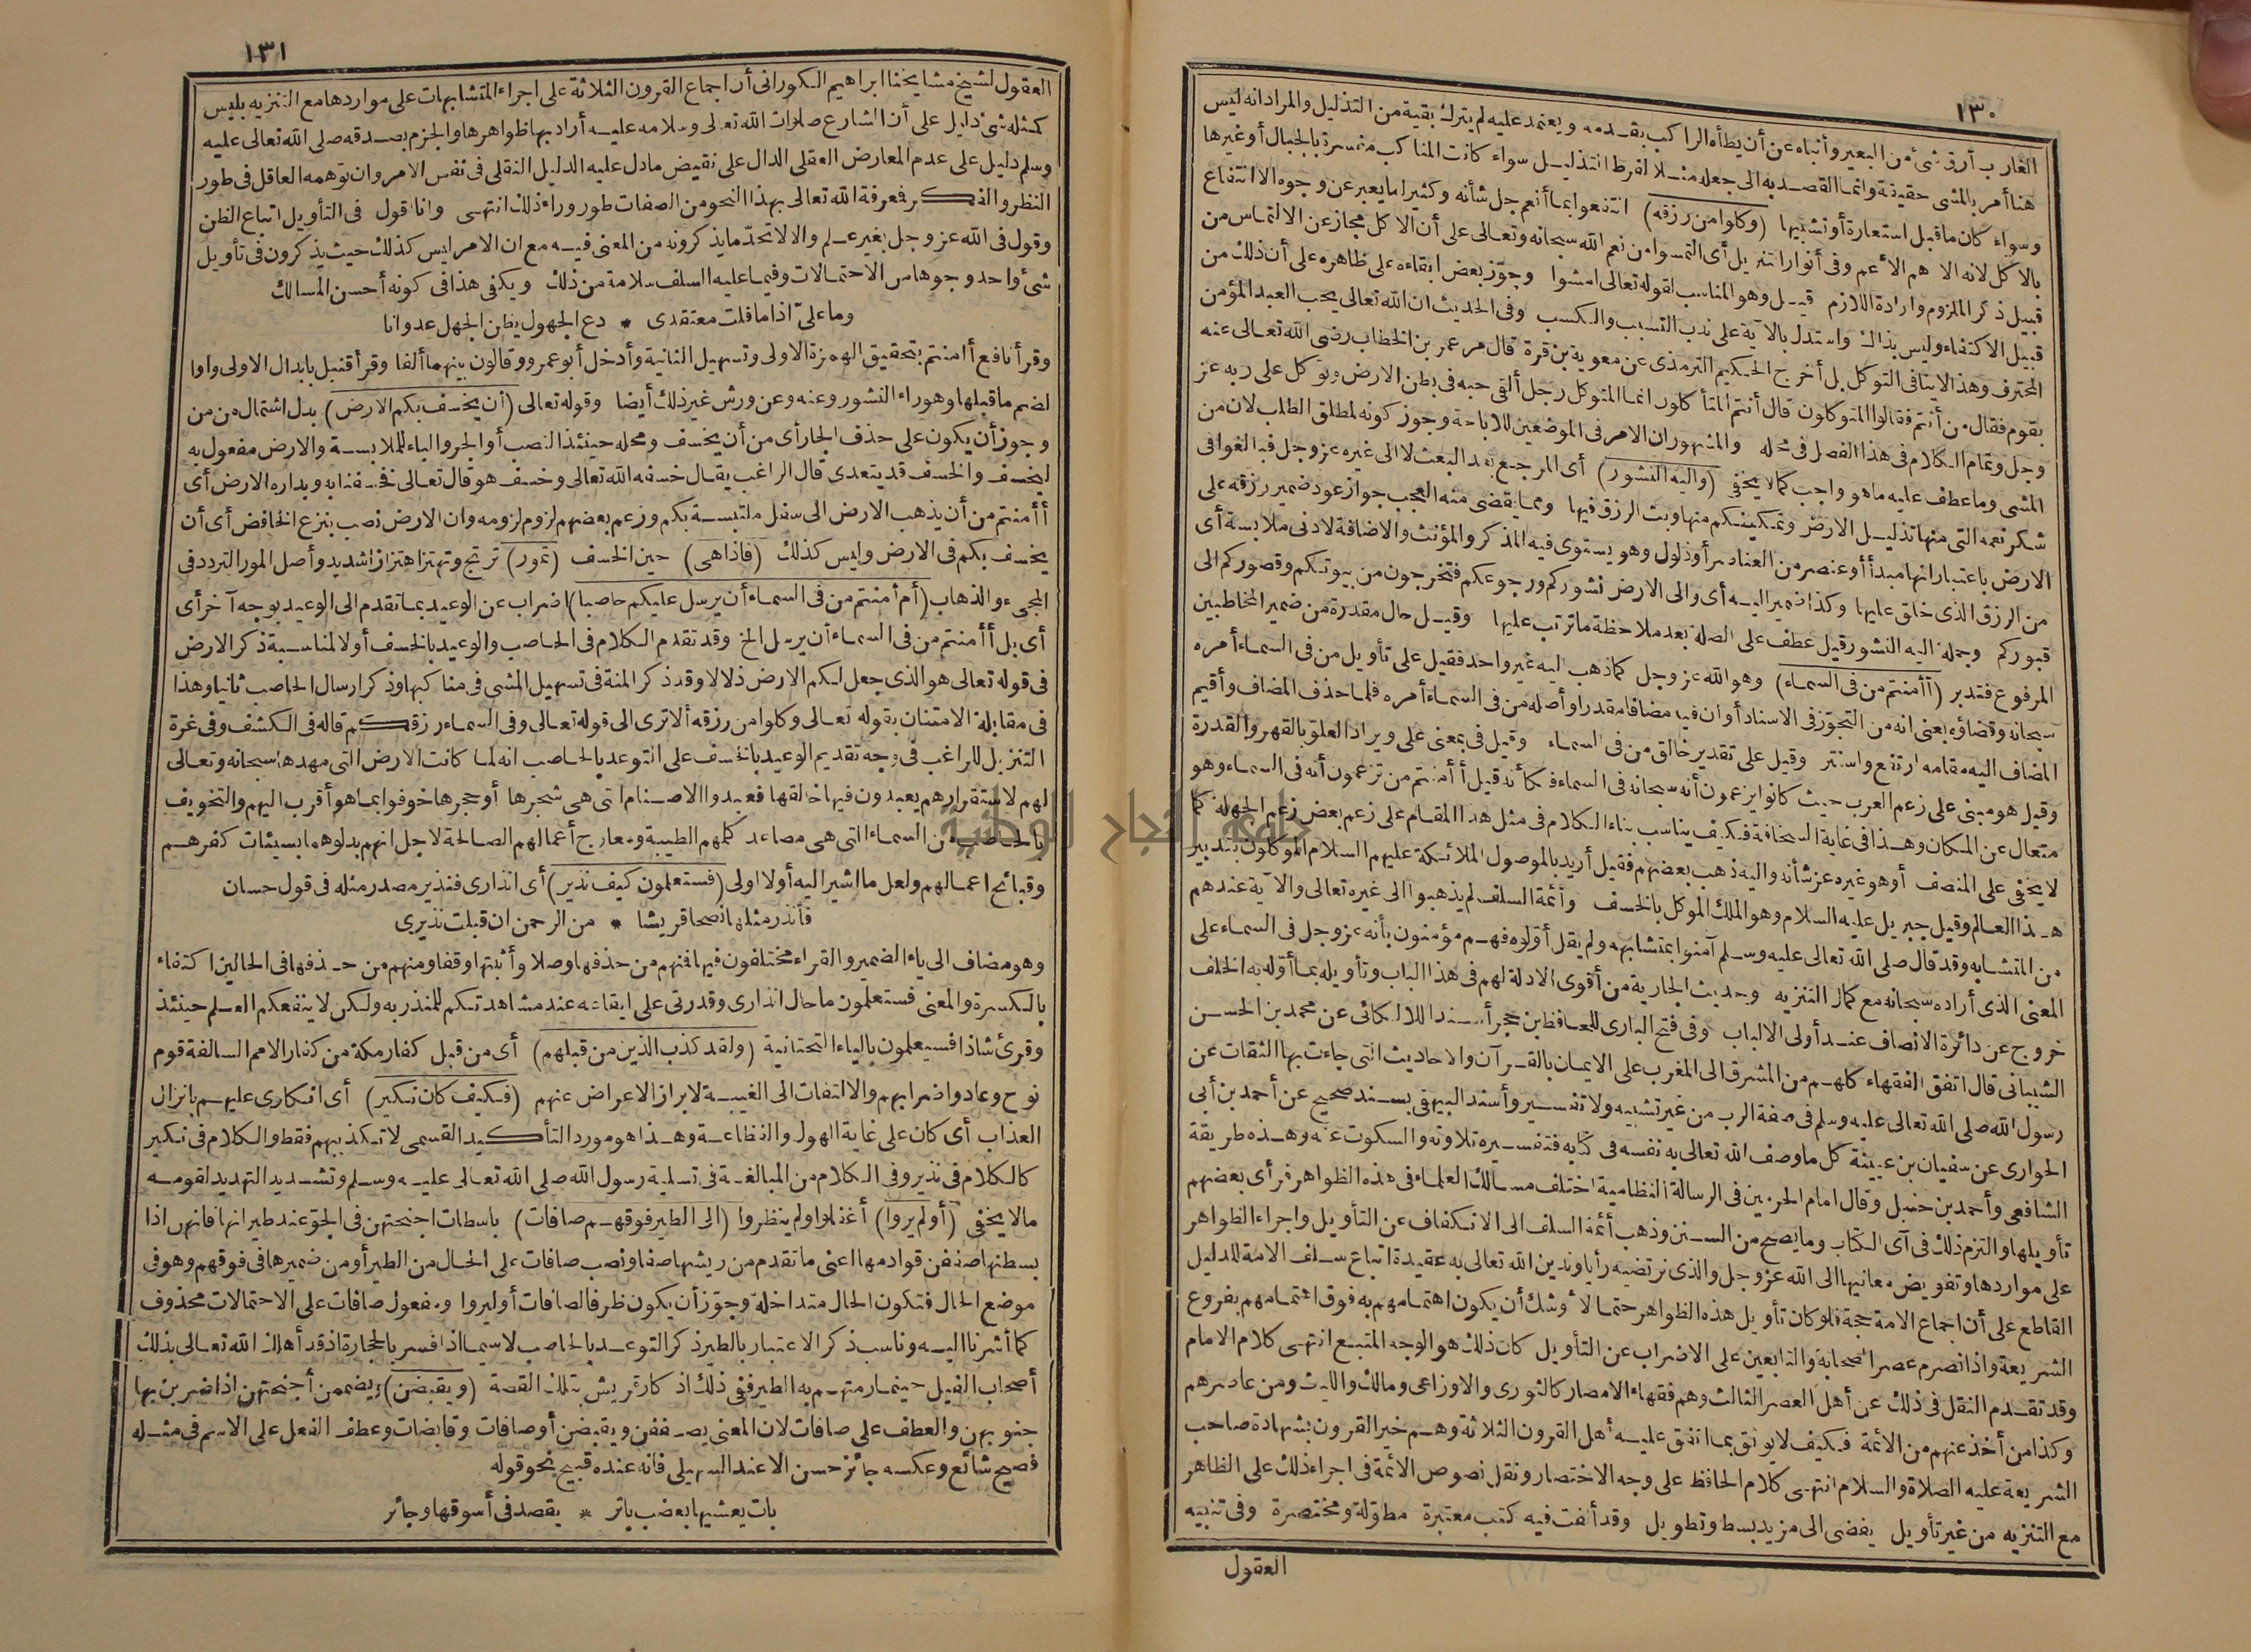 ١٣٠
الغارب أرق شئ من البعير وأنباه عن أن يطأه الراكب بقدمه ويعتمد عليه لم يترك بقية من التذليل والمراد انه ليس
هنا أمر بالمشى حقيقة وانما القصد به الى جعله مثلا لفرط التذليل سواء كانت المناكب مفسرة بالجبال أو غيرها
وسواء كان ما قبل استعارة أو تشبيها (وكلوا من رزقه) انتفعوا بما أنعم جل شأنه وكثيرا ما يعبر عن وجوه الانتفاع
بالاكل لانه الاهم الأعم وفى أنوار التنزيل أى التمسوا من نعم الله سبحانه وتعالى على أن الاكل مجاز عن الالتماس من
قبيل ذكر الملزوم وارادة اللازم قيل وهو المناسب لقوله تعالى امشوا وجوّز بعض ابقاءه على ظاهره على أن ذلك من
قبيل الاكتفاء وليس بذاك واستدل بالآية على ندب التسبب والكسب وفى الحديث ان الله تعالى يحب العبد المؤمن
المحترف وهذا لا ينافى التوكل بل أخرج الحكيم الترمذى عن معوية بن قرة قال مر عمر بن الخطاب رضى الله تعالى عنه
بقوم فقال من أنتم فقالوا المتوكلون قال أنتم المتأكلون انما المتوكل رجل ألقى حبه فى بطن الارض وتوكل على ربه عز
وجل وتمام الكلام فى هذا الفصل فى محله والمشهور ان الامر فى الموضعين للاباحة وجوز كونه لمطلق الطلب لان من
المشى وما عطف عليه ما هو واجب كما لا يخفى (واليه النشور) أى المرجع بعد البعث لا الى غيره عز وجل فبالغوا فى
شكر نعمه التى منها تذليل الارض وتمكينكم منها وبث الرزق فيها ومما يقضى منه العجب جواز عود ضمير رزقه على
الارض باعتبار انها مبدأ أو عنصر من العناصر أو ذلول وهو يستوى فيه المذكر والمؤنث والاضافة لادنى ملابسة أى
من الرزق الذى خلق عليها وكذا ضمير اليه أى والى الارض نشوركم ورجوعكم فتخرجون من بيوتكم وقصوركم الى
قبوركم وجملة اليه النشور قيل عطف على الصلة بعد ملاحظة ما ترتب عليها وقيل حال مقدرة من ضمير المخاطبين
المرفوع فتدبر (أأمنتم من فى السماء) وهو الله عز وجل كما ذهب اليه غير واحد فقيل على تأويل من فى السماء أمره
سبحانه وقضاؤه يعنى انه من التجوّز فى الاسناد أو ان فيه مضافا مقدرا وأصله من فى السماء أمره فلما حذف المضاف وأقيم
المضاف اليه مقامه ارتفع واستتر وقيل على تقدير خالق من فى السماء وقيل فى بمعنى على ويراد العلوّ بالقهر والقدرة
وقيل هو مبنى على زعم العرب حيث كانوا يزعمون أنه سبحانه فى السماء فكأنه قيل أأمنتم من تزعمون أنه فى السماء وهو
متعال عن المكان وهذا فى غاية السخافة فكيف يناسب بناء الكلام فى مثل هذا المقام على زعم بعض زعم الجهلة كما
لا يخفى على المنصف أو هو غيره عز شأنه واليه ذهب بعضهم فقيل أريد بالموصول الملائكة عليهم السلام الموكلون بتدبير
هذا العالم وقيل جبريل عليه السلام وهو الملك الموكل بالخسف وأئمة السلف لم يذهبوا الى غيره تعالى والآية عندهم
من المتشابه وقد قال صلى الله تعالى عليه وسلم آمنوا بمتشابهه ولم يقل أوّلوه فهم مؤمنون بأنه عز وجل فى السماء على
المعنى الذى أراده سبحانه مع كمال التنزيه وحديث الجارية من أقوى الادلة لهم فى هذا الباب وتأويله بما أوّله به الخلف
خروج عن دائرة الانصاف عند أولى الالباب وفى فتح البارى للحافظ بن حجر أسند اللالكائى عن محمد بن الحسن
الشيبانى قال اتفق الفقهاء كلهم من المشرق الى المغرب على الايمان بالقرآن والاحاديث التى جاءت بها الثقات عن
رسول الله صلى الله تعالى عليه وسلم فى صفة الرب من غير تشبيه ولا تفسير وأسند البيهقى بسند صحيح عن أحمد بن أبى
الحوارى عن سفيان بن عيينة كل ما وصف الله تعالى به نفسه فى كتابه فتفسيره تلاوته والسكوت عنه وهذه طريقة
الشافعى وأحمد بن حنبل وقال امام الحرمين فى الرسالة النظامية اختلف مسالك العلماء فى هذه الظواهر فرأى بعضهم
تأويلها والتزم ذلك فى آى الكتاب وما يصح من السنن وذهب أئمة السلف الى الانكفاف عن التأويل واجراء الظواهر
على مواردها وتفويض معانيها الى الله عز وجل والذى نرتضيه رأيا وندين الله تعالى به عقيدة اتباع سلف الامة للدليل
القاطع على أن اجماع الامة حجة فلو كان تأويل هذه الظواهر حتما لأوشك أن يكون اهتمامهم به فوق اهتمامهم بفروع
الشريعة واذا نصرم عصر الصحابة والتابعين على الاضراب عن التأويل كان ذلك هو الوجه المتبع انتهى كلام الامام
وقد تقدم النقل فى ذلك عن أهل العصر الثالث وهم فقهاء الامصار كالثورى والاوزاعى ومالك والليث ومن عاصرهم
وكذا من أخذ عنهم من الأئمة فكيف لا يوثق بما اتفق عليه أهل القرون الثلاثة وهم خير القرون بشهادة صاحب
الشريعة عليه الصلاة والسلام انتهى كلام الحافظ على وجه الاختصار ونقل نصوص الأئمة فى اجراء ذلك على الظاهر
مع التنزيه من غير تأويل يفضى الى مزيد بسط وتطويل وقد ألفت فيه كتب معتبرة مطوّلة ومختصرة وفى تنبيه
العقول
١٣١
العقول لشيخ مشايخنا ابراهيم الكورانى أن اجماع القرون الثلاثة على اجراء المتشابهات على مواردها مع التنزيه بليس
كمثله شئ دليل على أن الشارع صلوات الله تعالى وسلامه عليه أراد بها ظواهرها والجزم بصدقه صلى الله تعالى عليه
وسلم دليل على عدم المعارض العقلى الدال على نقيض ما دل عليه الدليل النقلى فى نفس الامر وان توهمه العاقل فى طور
النظر والفكر فمعرفة الله تعالى بهذا النحو من الصفات طور وراء ذلك انتهى وانا أقول فى التأويل اتباع الظن
وقول فى الله عز وجل بغير علم والا لاتحدّ ما يذكرونه من المعنى فيه مع ان الامر ليس كذلك حيث يذكرون فى تأويل
شئ واحد وجوها من الاحتمالات وفيما عليه السلف سلامة من ذلك ويكفى هذا فى كونه أحسن المسالك
وما علىّ اذا ما قلت معتقدى * دع الجهول يظن الجهل عدوانا
وقرأ نافع أامنتم بتحقيق الهمزة الاولى وتسهيل الثانية وأدخل أبو عمرو وقالون بينهما ألفا وقرأ قنبل بابدال الاولى واوا
لضم ما قبلها وهو راء النشور وعنه وعن ورش غير ذلك أيضا وقوله تعالى (أن يخسف بكم الارض) بدل اشتمال من من
وجوز أن يكون على حذف الجار أى من أن يخسف ومحله حينئذ النصب أو الجر والباء للملابسة والارض مفعول به
ليخسف والخسف قد يتعدى قال الراغب يقال خسفه الله تعالى وخسف هو قال تعالى فخسفنا به وبداره الارض أى
أأمنتم من أن يذهب الارض الى سفل ملتبسة بكم وزعم بعضهم لزوم لزومه وان الارض نصب بنزع الخافض أى أن
يخسف بكم فى الارض وليس كذلك (فاذا هى) حين الخسف (تمور) ترتج وتهتز اهتزازا شديد وأصل المور التردد فى
المجىء والذهاب (أم أمنتم من فى السماء أن يرسل عليكم حاصبا) اضراب عن الوعيد بما تقدم الى الوعيد بوجه آخر أى
أى بل أأمنتم من فى السماء أن يرسل الخ وقد تقدم الكلام فى الحاصب والوعيد بالخسف أولا لمناسبة ذكر الارض
فى قوله تعالى هو الذى جعل لكم الارض ذلولا وقد ذكر المنة فى تسهيل المشى فى مناكبها وذكر ارسال الحاصب ثانيا وهذا
فى مقابلة الامتنان بقوله تعالى وكلوا من رزقه ألا ترى الى قوله تعالى وفى السماء رزقكم قاله فى الكشف وفى غرة
التنزيل للراغب فى وجه تقديم الوعيد بالخسف على التوعد بالحاصب انه لما كانت الارض التى مهدها سبحانه وتعالى
لهم لاستقرارهم يعبدون فيها خالقها فعبدوا الاصنام التى هى شجرها أو حجرها خوفوا بما هو أقرب اليهم والتخويف
بالحاصب من السماء التى هى مصاعد كلمهم الطيبة ومعارج أعمالهم الصالحة لاجل انهم بدلوهما بسيئات كفرهم
وقبائح اعمالهم ولعل ما اشير اليه أولا اولى (فستعلمون كيف نذير) أى انذارى فنذير مصدر مثله فى قول حسان
فأنذر مثلها نصحا قريشا * من الرحمن ان قبلت نذيرى
وهو مضاف الى ياء الضمير والقراء مختلفون فيها فمنهم من حذفها وصلا وأثبتها وقفا ومنهم من حذفها فى الحالين اكتفاء
بالكسرة والمعنى فستعلمون ما حال انذارى وقدرتى على ايقاعه عند مشاهدتكم للمنذر به ولكن لا ينفعكم العلم حينئذ
وقرئ شاذا فسيعلمون بالياء التحتانية (ولقد كذب الذين من قبلهم) أى من قبل كفار مكة من كفار الامم السالفة قوم
نوح وعاد واضرابهم والالتفات الى الغيبة لابراز الاعراض عنهم (فكيف كان نكير) أى انكارى عليهم بانزال
العذاب أى كان على غاية الهول والفظاعة وهذا هو مورد التأكيد القسمى لا تكذيبهم فقط والكلام فى نكير
كالكلام فى نذير وفى الكلام من المبالغة فى تسلية رسول الله صلى الله تعالى عليه وسلم وتشديد التهديد لقومه
ما لا يخفى (أولم يروا) أغفلوا ولم ينظروا (الى الطير فوقهم صافات) باسطات اجنحتهن فى الجوّ عند طيرانها فانهن اذا
بسطنها صففن قوادمها اعنى ما تقدم من ريشها صفا ونصب صافات على الحال من الطير أو من ضميرها فى فوقهم وهو فى
موضع الحال فتكون الحال متداخلة وجوّز أن يكون ظرفا لصافات أو ليروا ومفعول صافات على الاحتمالات محذوف
كما أشرنا اليه وناسب ذكر الاعتبار بالطير ذكر التوعد بالحاصب لا سيما اذا فسر بالحجارة اذ قد أهلك الله تعالى بذلك
أصحاب الفيل حينما رمتهم به الطير ففى ذلك اذكار قريش بتلك القصة (ويقبضن) ويضممن أجنحتهن اذا ضربن بها
جنوبهن والعطف على صافات لان المعنى يصففن ويقبضن أو صافات وقابضات وعطف الفعل على الاسم فى مثله
فصيح شائع وعكسه جائز حسن الا عند السهيلى فانه عنده قبيح نحو قوله
بات يعشيها بعضب باتر * يقصد فى أسوقها وجائر
جامعة النجاح الوطنية